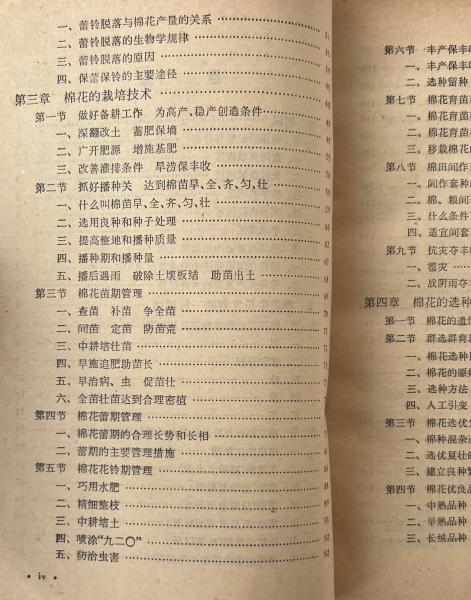 一、蕾铃脱落与棉花产量的关系
二、蕾铃脱落的生物学规律
三、蕾铃脱落的原因
四、保蕾保铃的主要途径
第三章 棉花的栽培技术
第一节 做好备耕工作 为高产、稳产创造条件
一、深翻改土 蓄肥保墒
二、广开肥源 增施基肥
三、改善灌排条件 旱涝保丰收
第二节 抓好播种关 达到棉苗早、全、齐、匀、壮
一、什么叫棉苗早、全、齐、匀、壮
二、选用良种和种子处理
三、提高整地和播种质量
四、播种期和播种量
五、播后遇雨 破除土壤板结 助苗出土
第三节 棉花苗期管理
一、查苗 补苗 争全苗
二、间苗 定苗 防苗荒
三、中耕培壮苗
四、早施追肥助苗长
五、早治病、虫 促苗壮
六、全苗壮苗达到合理密植
第四节 棉花蕾期管理
一、棉花蕾期的合理长势和长相
二、蕾期的主要管理措施
第五节 棉花花铃期管理
一、巧用水肥
二、精细整枝
三、中耕培土 91
四、喷涂“九二〇” 92
五、防治虫害 92
· iv ·
第六节 丰产保丰收
一、丰产保丰
二、选种留种
第七节 棉花育苗
一、棉花育苗
二、棉花育苗
三、移栽棉花
第八节 棉田间作
一、间作套种
二、棉、粮间
三、什么条件
四、适宜间套
第九节 抗灾夺丰
一、雹灾
二、战阴雨夺
第四章 棉花的选种
第一节 棉花的遗
第二节 群选群育
一、棉花选种
二、棉花的原
三、选种方法
四、人工引变
第三节 棉花选优
一、棉种混杂
二、选优复壮的
三、建立良种
第四节 棉花优良品
一、中熟品种
二、早熟品种
三、长绒品种